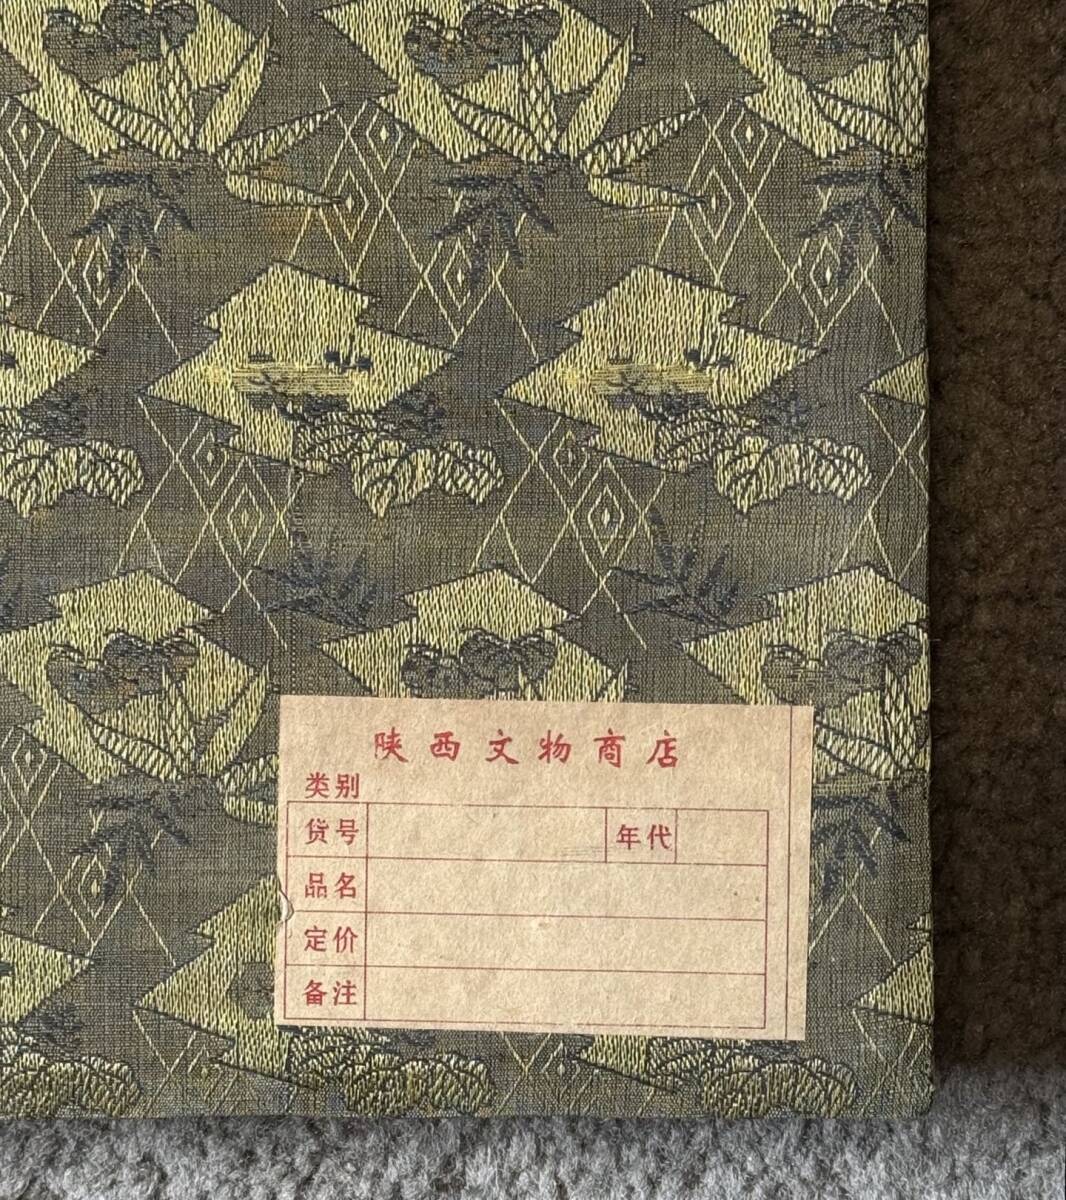 陕西文物商店
类别
货号 年代
品名
定价
备注